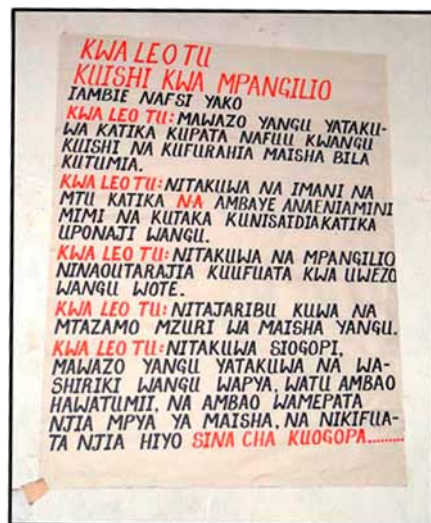 KWA LEO TU
KUISHI KWA MPANGILIO
IAMBIE NAFSI YAKO
KWA LEO TU: MAWAZO YANGU YATAKU-
WA KATIKA KUPATA NAFUU KWANGU
KUISHI NA KUFURAHIA MAISHA BILA
KUTUMIA.
KWA LEO TU: NITAKUWA NA IMANI NA
MTU KATIKA N·A AMBAYE ANAENIAMINI
MIMI NA KUTAKA KUNISAIDIA KATIKA
UPONAJI WANGU.
KWA LEO TU: NITAKUWA NA MPANGILIO
NINAOUTARAJIA KUUFUATA KWA UWEZO
WANGU WOTE.
KWA LEO TU: NITAJARIBU KUWA NA
MTAZAMO MZURI WA MAISHA YANGU.
KWA LEO TU: NITAKUWA SIOGOPI,
MAWAZO YANGU YATAKUWA NA WA-
SHIRIKI WANGU WAPYA, WATU AMBAO
HAWATUMII, NA AMBAO WAMEPATA
NJIA MPYA YA MAISHA, NA NIKIFUA-
TA NJIA HIYO SINA CHA KUOGOPA..........